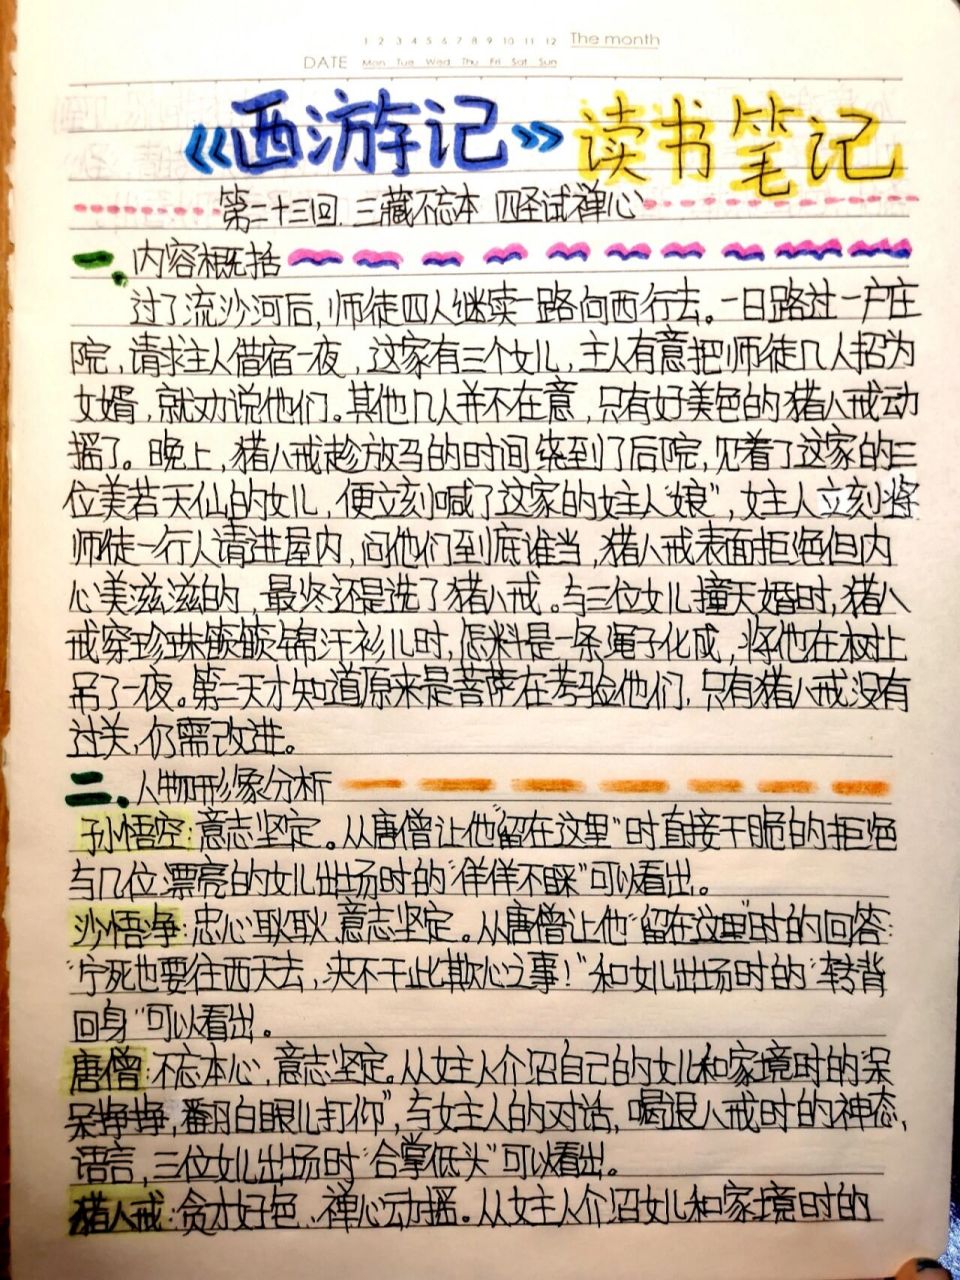 1 2 3 4 5 6 7 8 9 10 11 12 The month
DATE Mon Tue Wed Thu Fri Sat Sun
《西游记》读书笔记
第二十三回 三藏不忘本 四圣试禅心
一、内容概括
过了流沙河后,师徒四人继续一路向西行去。一日路过一户庄
院,请求主人借宿一夜,这家有三个女儿,主人有意把师徒几人招为
女婿,就劝说他们。其他几人并不在意,只有好美色的猪八戒动
摇了。晚上,猪八戒趁放马的时间绕到了后院,见着了这家的三
位美若天仙的女儿,便立刻喊了这家的女主人"娘",女主人立刻将
师徒一行人请进屋内,问他们到底谁当,猪八戒表面拒绝但内
心美滋滋的,最终还是选了猪八戒。与三位女儿撞天婚时,猪八
戒穿珍珠嵌锦汗衫儿时,怎料是一条绳子化成,将他在树上
吊了一夜。第二天才知道原来是菩萨在考验他们,只有猪八戒没有
过关,仍需改进。
二、人物形象分析
孙悟空:意志坚定。从唐僧让他"留在这里"时直接干脆的拒绝
与几位漂亮的女儿出场时的"佯佯不睬"可以看出。
沙悟净:忠心耿耿,意志坚定。从唐僧让他"留在这里"时的回答:
"宁死也要往西天去,决不干此欺心之事!"和女儿出场时的"转背
回身"可以看出。
唐僧:不忘本心,意志坚定。从女主人介绍自己的女儿和家境时的"呆
呆挣挣,翻白眼儿打仰",与女主人的对话,喝退八戒时的神态,
语言,三位女儿出场时"合掌低头"可以看出。
猪八戒:贪才好色、禅心动摇。从女主人介绍女儿和家境时的